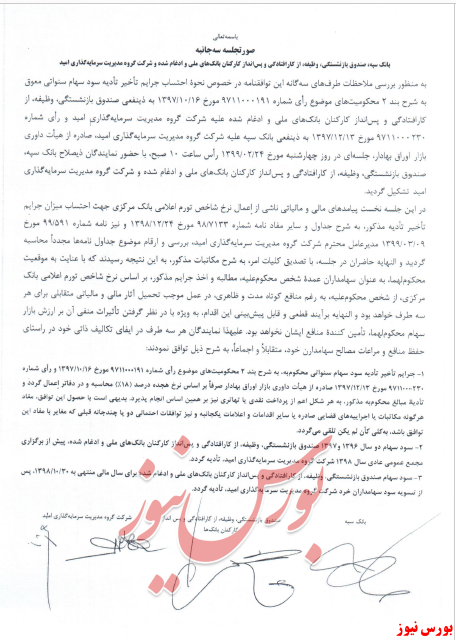 باسمه‌تعالی
صورتجلسه سه‌جانبه
بانک سپه، صندوق بازنشستگی، وظیفه، از کارافتادگی و پس‌انداز کارکنان بانک‌های ملی و ادغام شده و شرکت گروه مدیریت سرمایه‌گذاری امید
به منظور بررسی ملاحظات طرف‌های سه‌گانه این توافقنامه در خصوص نحوهٔ احتساب جرایم تأخیر تأدیه سود سهام سنواتی معوق
به شرح بند ۲ محکومیت‌های موضوع رأی شماره ۹۷۱۱۰۰۰۱۹۱ مورخ ۱۳۹۷/۱۰/۱۶ به ذینفعی صندوق بازنشستگی، وظیفه، از
کارافتادگی و پس‌انداز کارکنان بانک‌های ملی و ادغام شده علیه شرکت گروه مدیریت سرمایه‌گذاری امید و رأی شماره
۹۷۱۱۰۰۰۲۳۰ مورخ ۱۳۹۷/۱۲/۱۳ به ذینفعی بانک سپه علیه شرکت گروه مدیریت سرمایه‌گذاری امید، صادره از هیأت داوری
بازار اوراق بهادار، جلسه‌ای در روز چهارشنبه مورخ ۱۳۹۹/۰۲/۲۴ رأس ساعت ۱۰ صبح، با حضور نمایندگان ذیصلاح بانک سپه،
صندوق بازنشستگی، وظیفه، از کارافتادگی و پس‌انداز کارکنان بانک‌های ملی و ادغام شده و شرکت گروه مدیریت سرمایه‌گذاری
امید تشکیل گردید.
در این جلسه نخست پیامدهای مالی و مالیاتی ناشی از اعمال نرخ شاخص تورم اعلامی بانک مرکزی جهت احتساب میزان جرایم
تأخیر تأدیه مذکور، به شرح جداول و سایر مفاد نامه شماره ۹۸/۷۱۳۳ مورخ ۱۳۹۸/۱۲/۲۴ و نیز نامه شماره ۹۹/۵۹۱ مورخ
۱۳۹۹/۰۳/۰۹ مدیرعامل محترم شرکت گروه مدیریت سرمایه‌گذاری امید، بررسی و ارقام موضوع جداول نامه‌ها مجدداً محاسبه
گردید و النهایه حاضران در جلسه، با تصدیق کلیات امر، به شرح مکاتبات مذکور، به این نتیجه رسیدند که با عنایت به موقعیت
محکوم‌لهما، به عنوان سهامداران عمدهٔ شخص محکوم‌علیه، مطالبه و اخذ جرایم مذکور، بر اساس نرخ شاخص تورم اعلامی بانک
مرکزی، از شخص محکوم‌علیه، به رغم منافع کوتاه مدت و ظاهری، در عمل موجب تحمیل آثار مالی و مالیاتی متقابلی برای هر
سه طرف خواهد بود و النهایه برآیند قطعی و قابل پیش‌بینی این اقدام، به ویژه با در نظر گرفتن تأثیرات منفی آن بر ارزش بازار
سهام محکوم‌لهما، تأمین کنندهٔ منافع ایشان نخواهد بود. علیهذا نمایندگان هر سه طرف در ایفای تکالیف ذاتی خود در راستای
حفظ منافع و مراعات مصالح سهامدارن خود، متقابلاً و اجماعاً، به شرح ذیل توافق نمودند:
۱- جرایم تأخیر تأدیه سود سهام سنواتی محکوم‌به، به شرح بند ۲ محکومیت‌های موضوع رأی شماره ۹۷۱۱۰۰۰۱۹۱ مورخ ۱۳۹۷/۱۰/۱۶ و رأی شماره
۹۷۱۱۰۰۰۲۳۰ مورخ ۱۳۹۷/۱۲/۱۳ صادره از هیأت داوری بازار اوراق بهادار صرفاً بر اساس نرخ هجده درصد (۱۸٪) محاسبه و در دفاتر اعمال گردد و
تأدیهٔ مبالغ محکوم‌به مذکور، به هر شکل اعم از پرداخت نقدی یا تهاتری نیز بر همین اساس انجام پذیرد. بدیهی است با حصول این توافق، مفاد
هرگونه مکاتبات یا اجراییه‌های قضایی صادره یا سایر اقدامات و اعلامات یکجانبه و نیز توافقات احتمالی دو یا چندجانبه قبلی که مغایر با مفاد این
توافق باشد، به‌کلی کأن لم یکن تلقی می‌گردد.
۲- سود سهام دو سال ۱۳۹۶ و ۱۳۹۷ صندوق بازنشستگی، وظیفه، از کارافتادگی و پس‌انداز کارکنان بانک‌های ملی و ادغام شده، پیش از برگزاری
مجمع عمومی عادی سال ۱۳۹۸ شرکت گروه مدیریت سرمایه‌گذاری امید، تأدیه گردد.
۳- سود سهام صندوق بازنشستگی، وظیفه، از کارافتادگی و پس‌انداز کارکنان بانک‌های ملی و ادغام شده برای سال مالی منتهی به ۱۳۹۸/۱۰/۳۰، پس
از تسویه سود سهامداران خرد شرکت گروه مدیریت سرمایه‌گذاری امید، تأدیه گردد.
بانک سپه
صندوق بازنشستگی، وظیفه، از کارافتادگی و پس انداز
کارکنان بانک‌ها
شرکت گروه مدیریت سرمایه‌گذاری امید
بورس نیوز
بورس نیوز